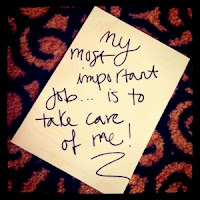 my
most
important
job... is to
take care
of me!